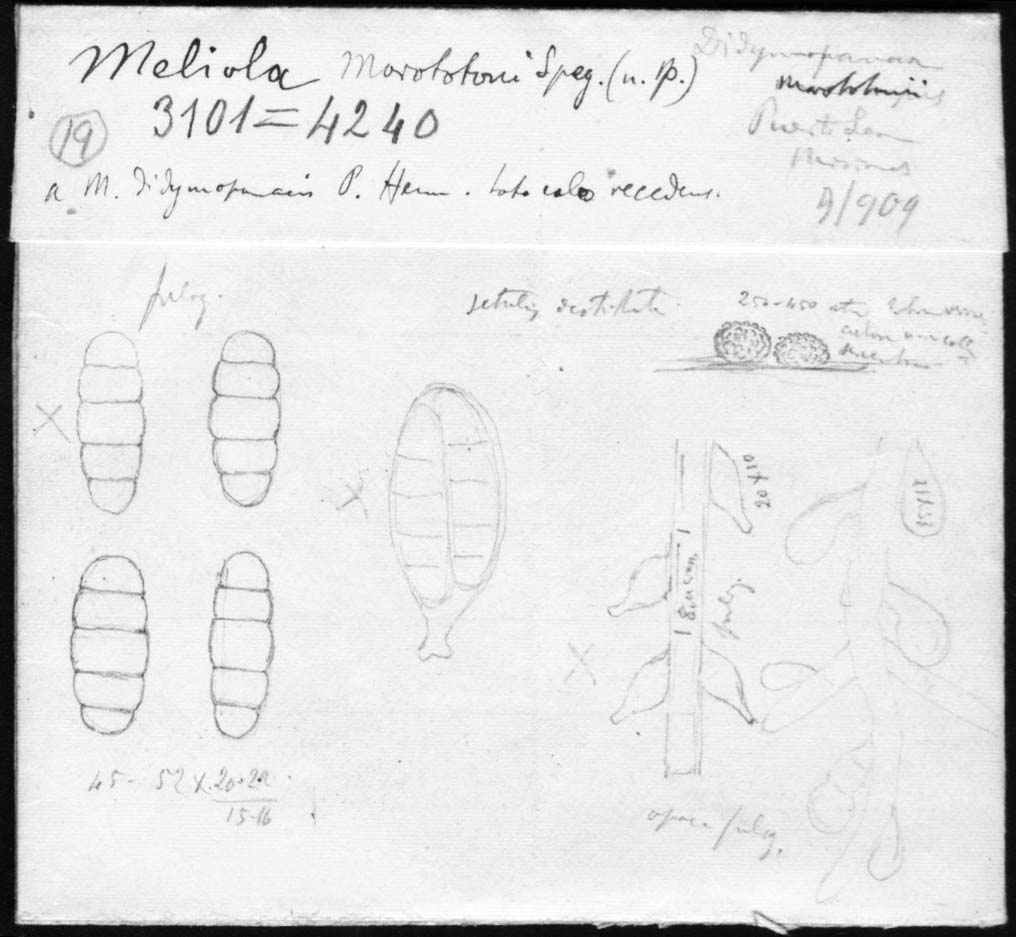 Meliola Morototoni Speg. (n. sp.)
3101=4240
19
a M. Didymopanacis P. Henn. toto coelo recedens.
Didymopanax
Morototonii
Puerto Leon
Misiones
9/909
fulig.
setulis destituta
250-450
45-52 x 20-22
15-16
20x10
8 µ
fulig.
opace fulig.